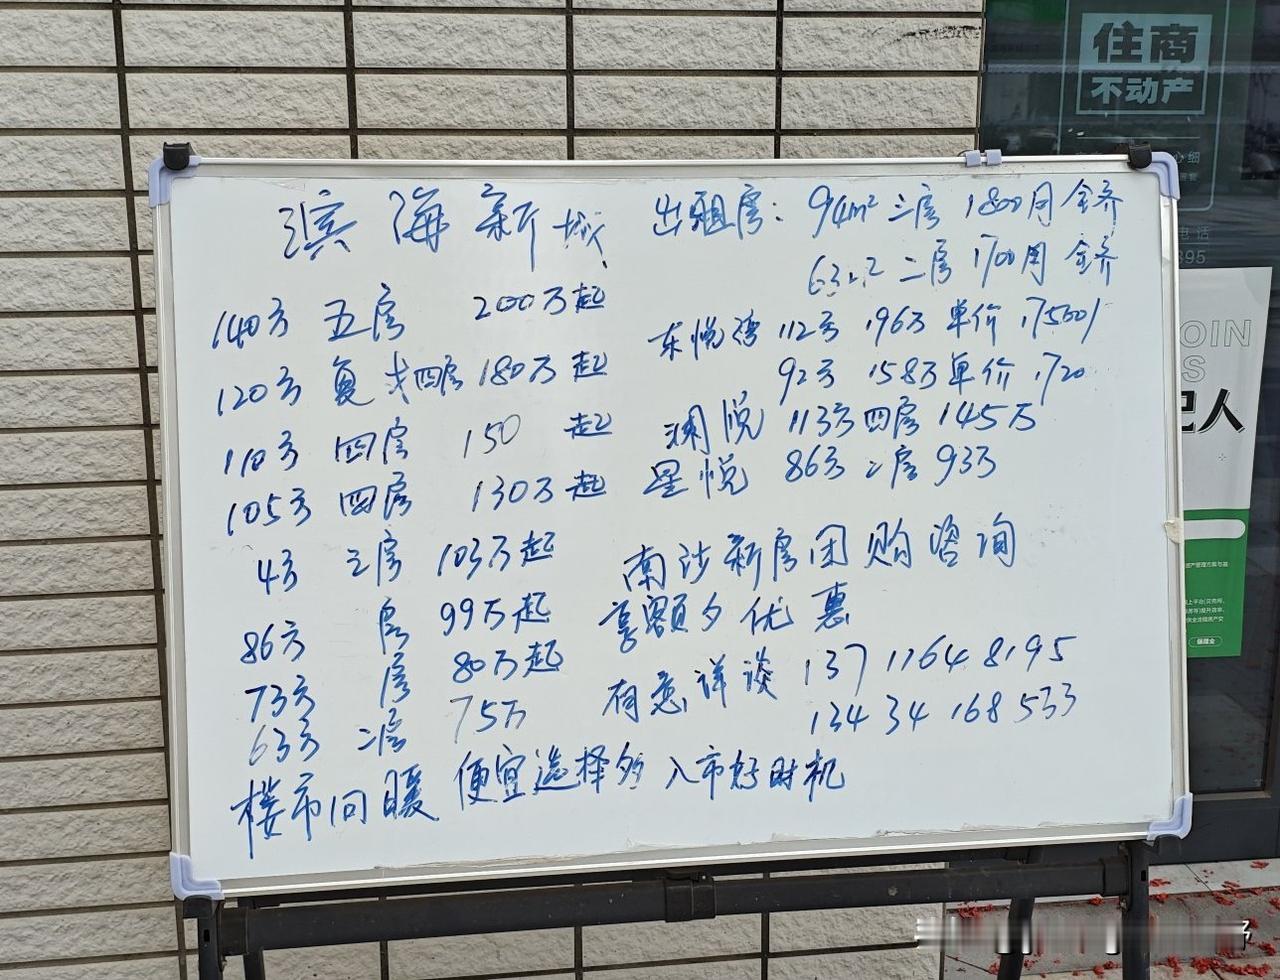 住商
不动产
心细
电话
395
滨海新城
140方 五房 200万起
120方 复式四房 180万起
110方 四房 150 起
105方 四房 130万起
4方 三房 103万起
86方 房 99万起
73方 房 80万起
63方 二房 75万
楼市回暖 便宜选择多 入市好时机
出租房: 94m² 三房 1800月 全齐
63 2 二房 1700月 全齐
东悦湾 112方 196万 单价 17500/
92方 158万 单价 1720
澜悦 113方 四房 145万
星悦 86方 二房 93万
南沙新房团购咨询
享额外优惠
有意详谈 137 1164 8195
134 34 168 533
OIN
S
纪人